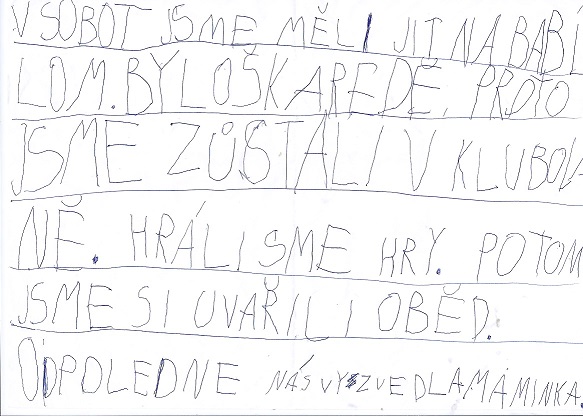 V SOBOT JSME MĚLI JIT NA BABÍ
LOM. BYLO ŠKAREDĚ, PROTO
JSME ZŮSTALI V KLUBOV-
NĚ. HRÁLI SME HRY. POTOM
JSME SI UVAŘILI OBĚD.
ODPOLEDNE NÁS VYZVEDLA MAMINKA.